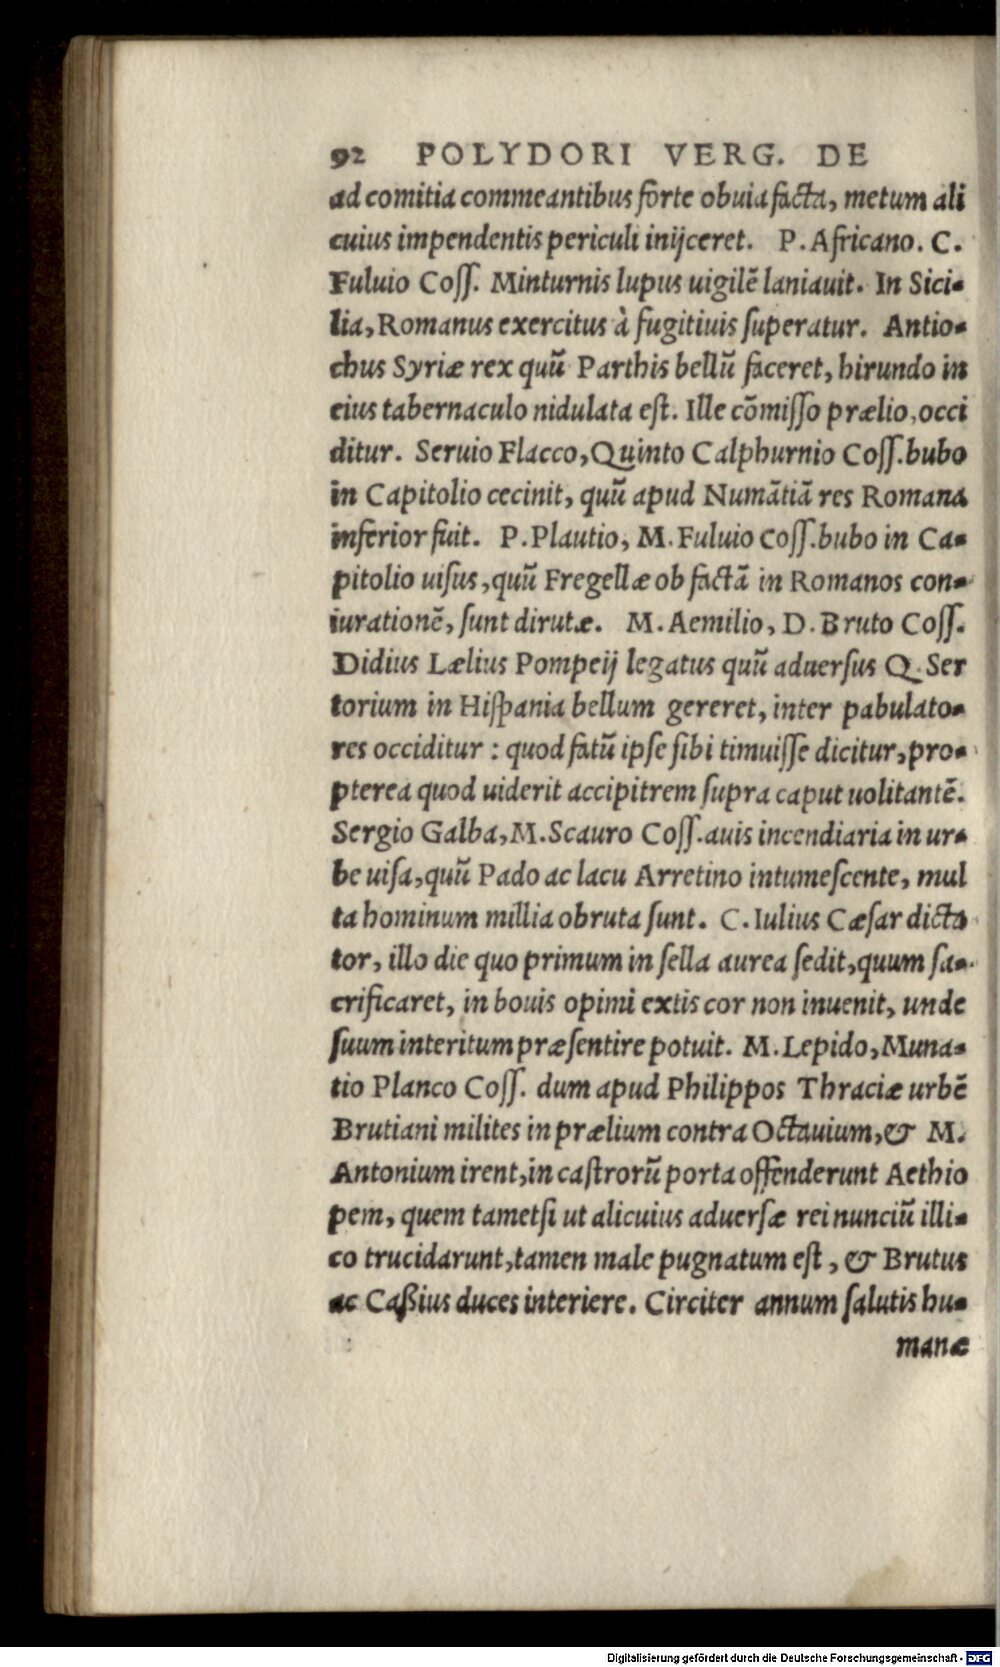 92 POLYDORI VERG. DE
ad comitia commeantibus forte obuia facta, metum ali
cuius impendentis periculi inijceret. P. Africano. C.
Fuluio Coſſ. Minturnis lupus uigilẽ laniauit. In Sici-
lia, Romanus exercitus à fugitiuis ſuperatur. Antio-
chus Syriæ rex quũ Parthis bellũ faceret, hirundo in
eius tabernaculo nidulata eſt. Ille cõmiſſo prælio, occi
ditur. Seruio Flacco, Quinto Calphurnio Coſſ. bubo
in Capitolio cecinit, quũ apud Numãtiã res Romana
inferior fuit. P. Plautio, M. Fuluio Coſſ. bubo in Ca-
pitolio uiſus, quũ Fregellæ ob factã in Romanos con-
iurationẽ, ſunt dirutæ. M. Aemilio, D. Bruto Coſſ.
Didius Lælius Pompeij legatus quũ aduerſus Q. Ser
torium in Hiſpania bellum gereret, inter pabulato-
res occiditur : quod fatũ ipſe ſibi timuiſſe dicitur, pro-
pterea quod uiderit accipitrem ſupra caput uolitantẽ.
Sergio Galba, M. Scauro Coſſ. auis incendiaria in ur-
be uiſa, quũ Pado ac lacu Arretino intumeſcente, mul
ta hominum millia obruta ſunt. C. Iulius Cæſar dicta
tor, illo die quo primum in ſella aurea ſedit, quum ſa-
crificaret, in bouis opimi extis cor non inuenit, unde
ſuum interitum præſentire potuit. M. Lepido, Muna-
tio Planco Coſſ. dum apud Philippos Thraciæ urbẽ
Brutiani milites in prælium contra Octauium, & M.
Antonium irent, in caſtrorũ porta offenderunt Aethio
pem, quem tametſi ut alicuius aduerſæ rei nunciũ illi-
co trucidarunt, tamen male pugnatum eſt, & Brutus
ac Caßius duces interiere. Circiter annum ſalutis hu-
manæ
Digitalisierung gefördert durch die Deutsche Forschungsgemeinschaft - DFG